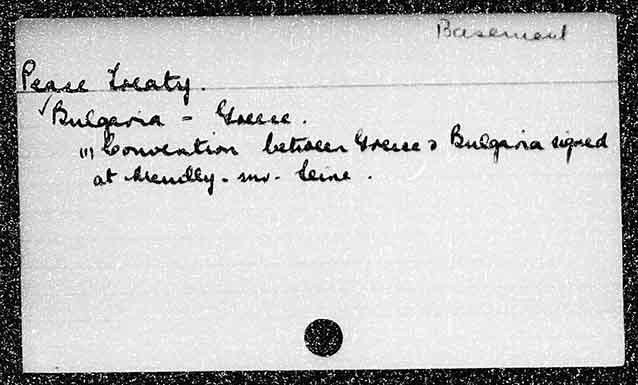 Basement
Pease Treaty.
✓Bulgaria - Greece.
(1) Convention between Greece & Bulgaria signed
at Neuilly - sur - Seine.